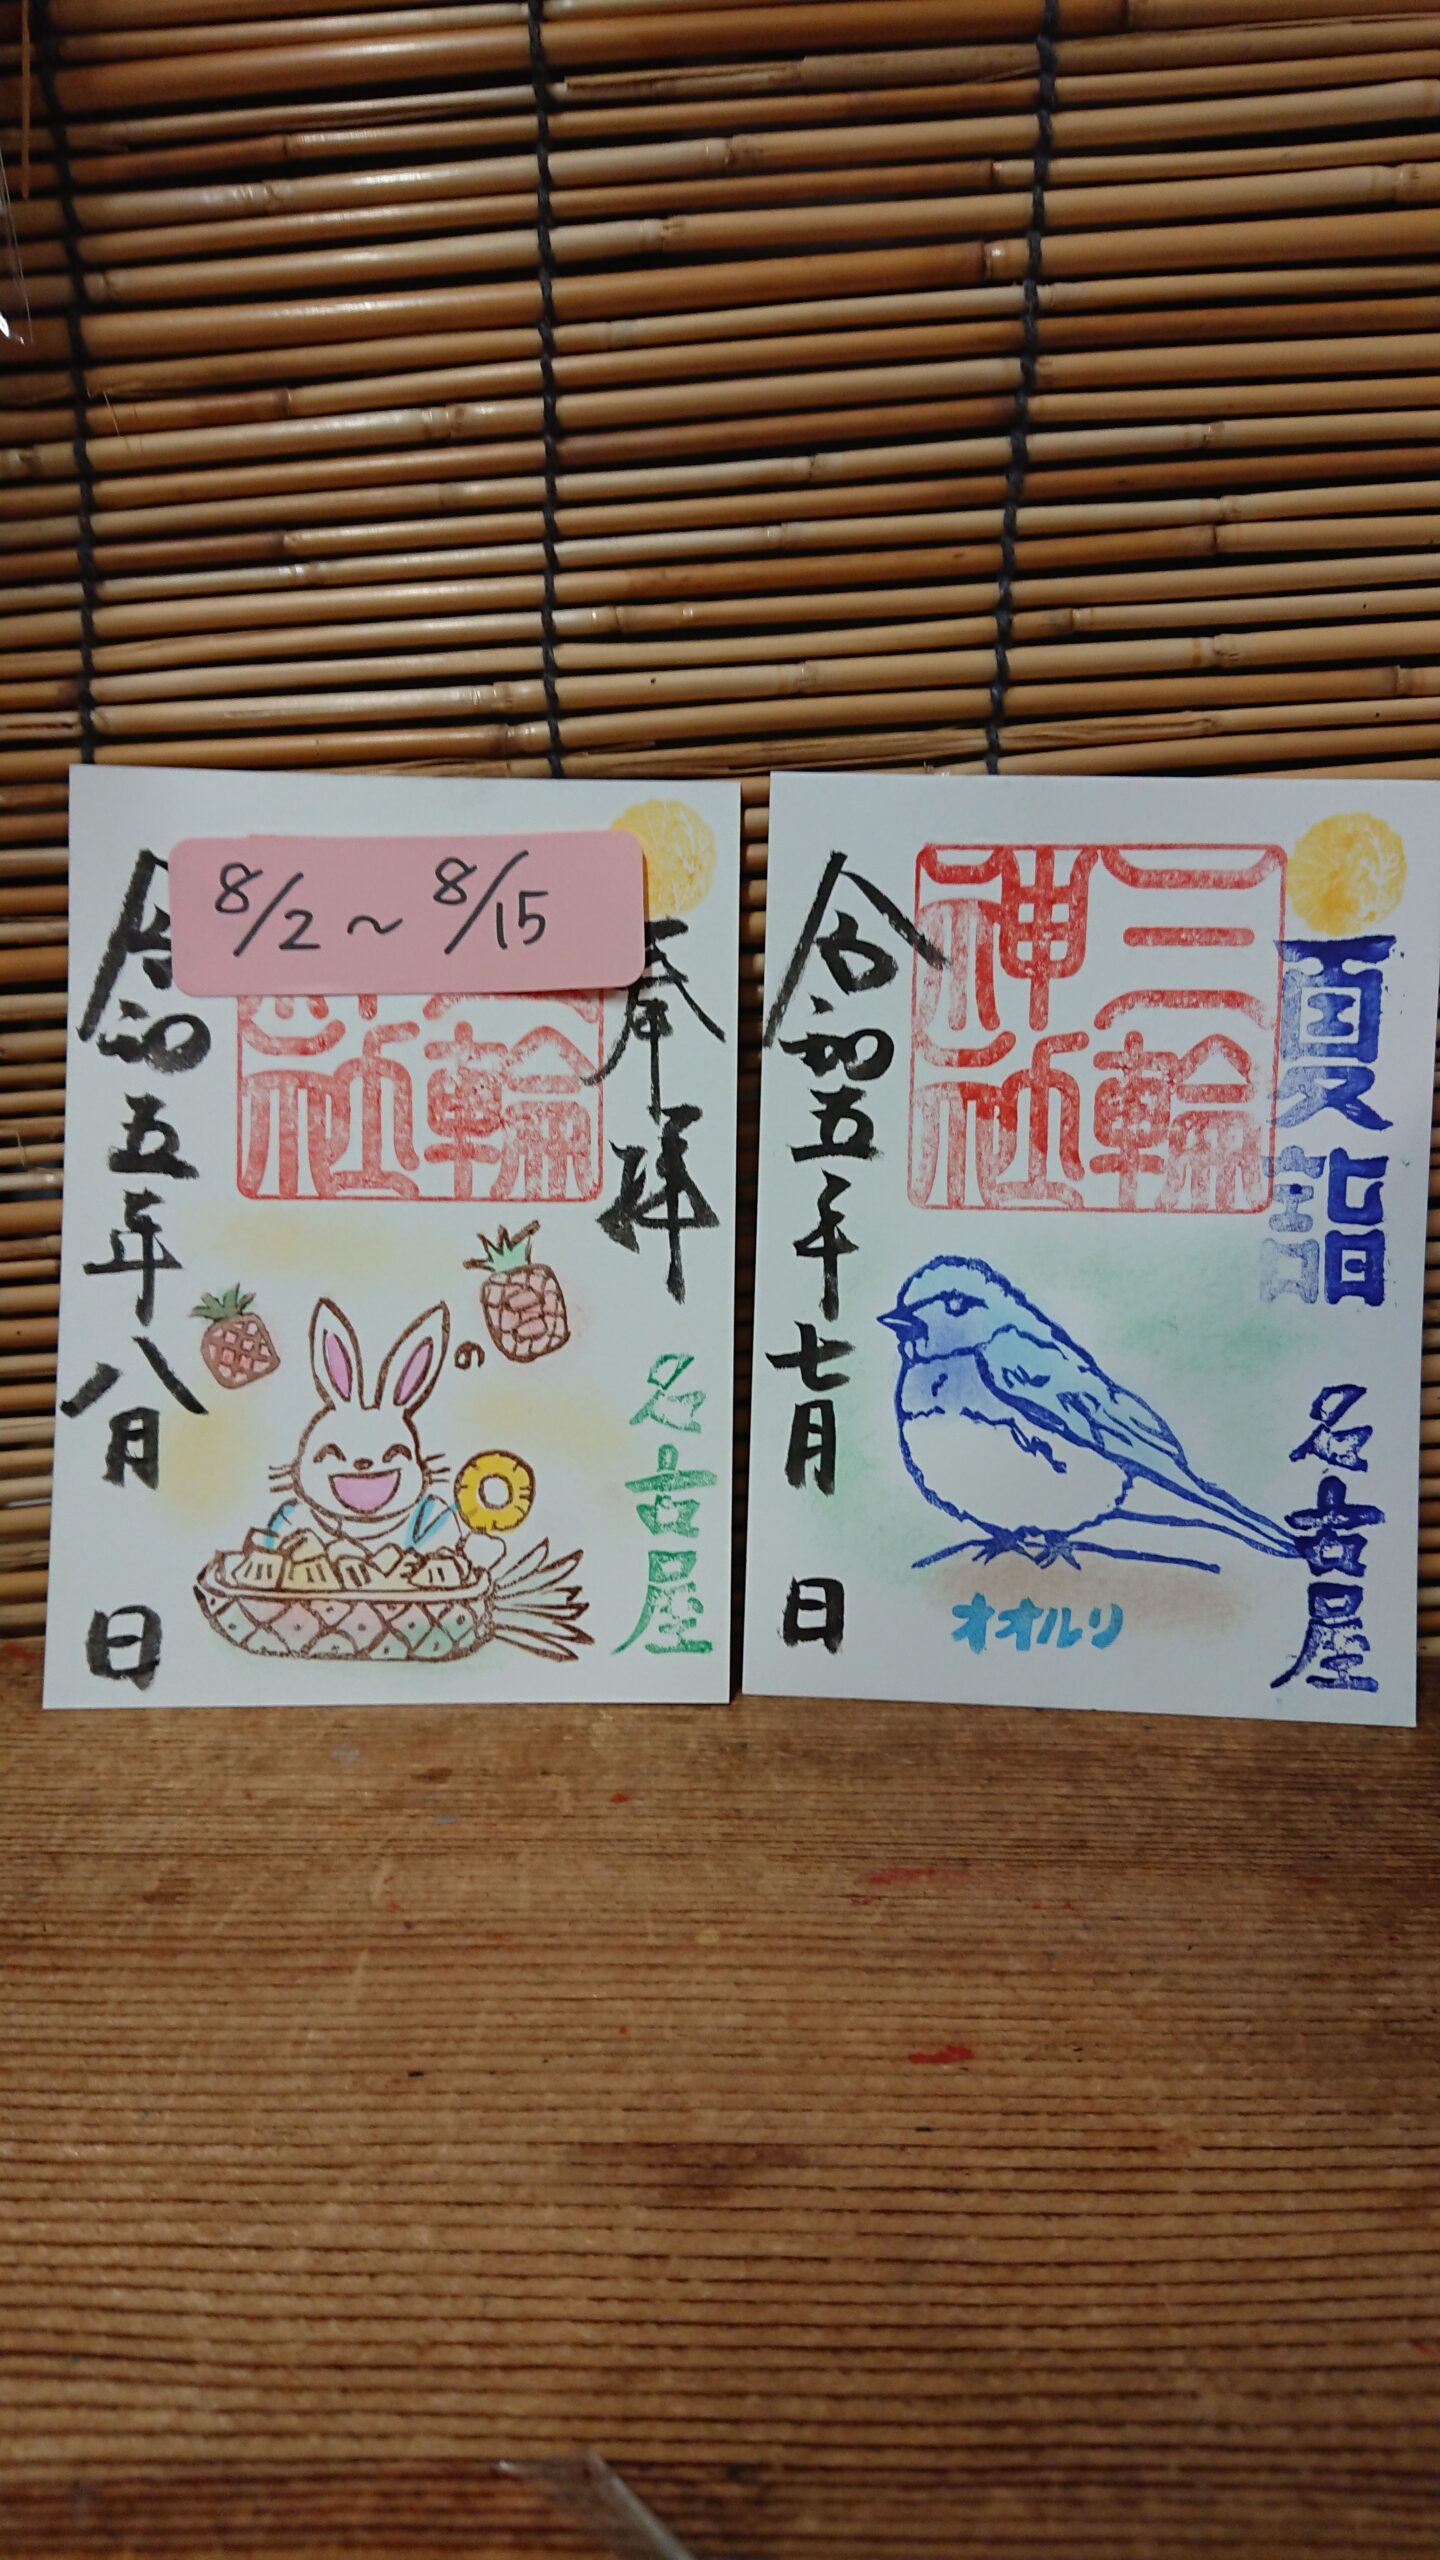 8/2 ~ 8/15
奉拝
名古屋
輪
社
の
令和五年八月 日
夏詣
名古屋
三輪
神社
令和五年七月 日
オオルリ